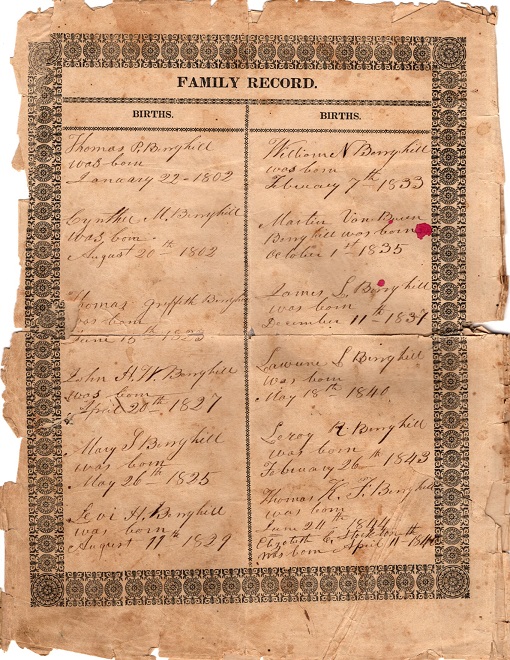 FAMILY RECORD.
BIRTHS.
Thomas P. Berryhill
was born
January 22 - 1802
Cynthie M. Berryhill
was born
August 20th 1802
Thomas Griffith Berryhill
was born
June 15th 1823
John H. W. Berryhill
was born
April 20th 1827
Mary J Berryhill
was born
May 26th 1825
Levi H Berryhill
was born
August 11th 1829
BIRTHS.
William N Berryhill
was born
February 7th 1833
Martin Van Buren
Berryhill was born
October 1st 1835
James L Berryhill
was born
December 11th 1837
S Berryhill
was born
May 18th 1840
Leroy R Berryhill
was born
February 26th 1843
Thomas K. F. Berryhill
was born
June 24th 1844
Elizabeth E.
was born April 11